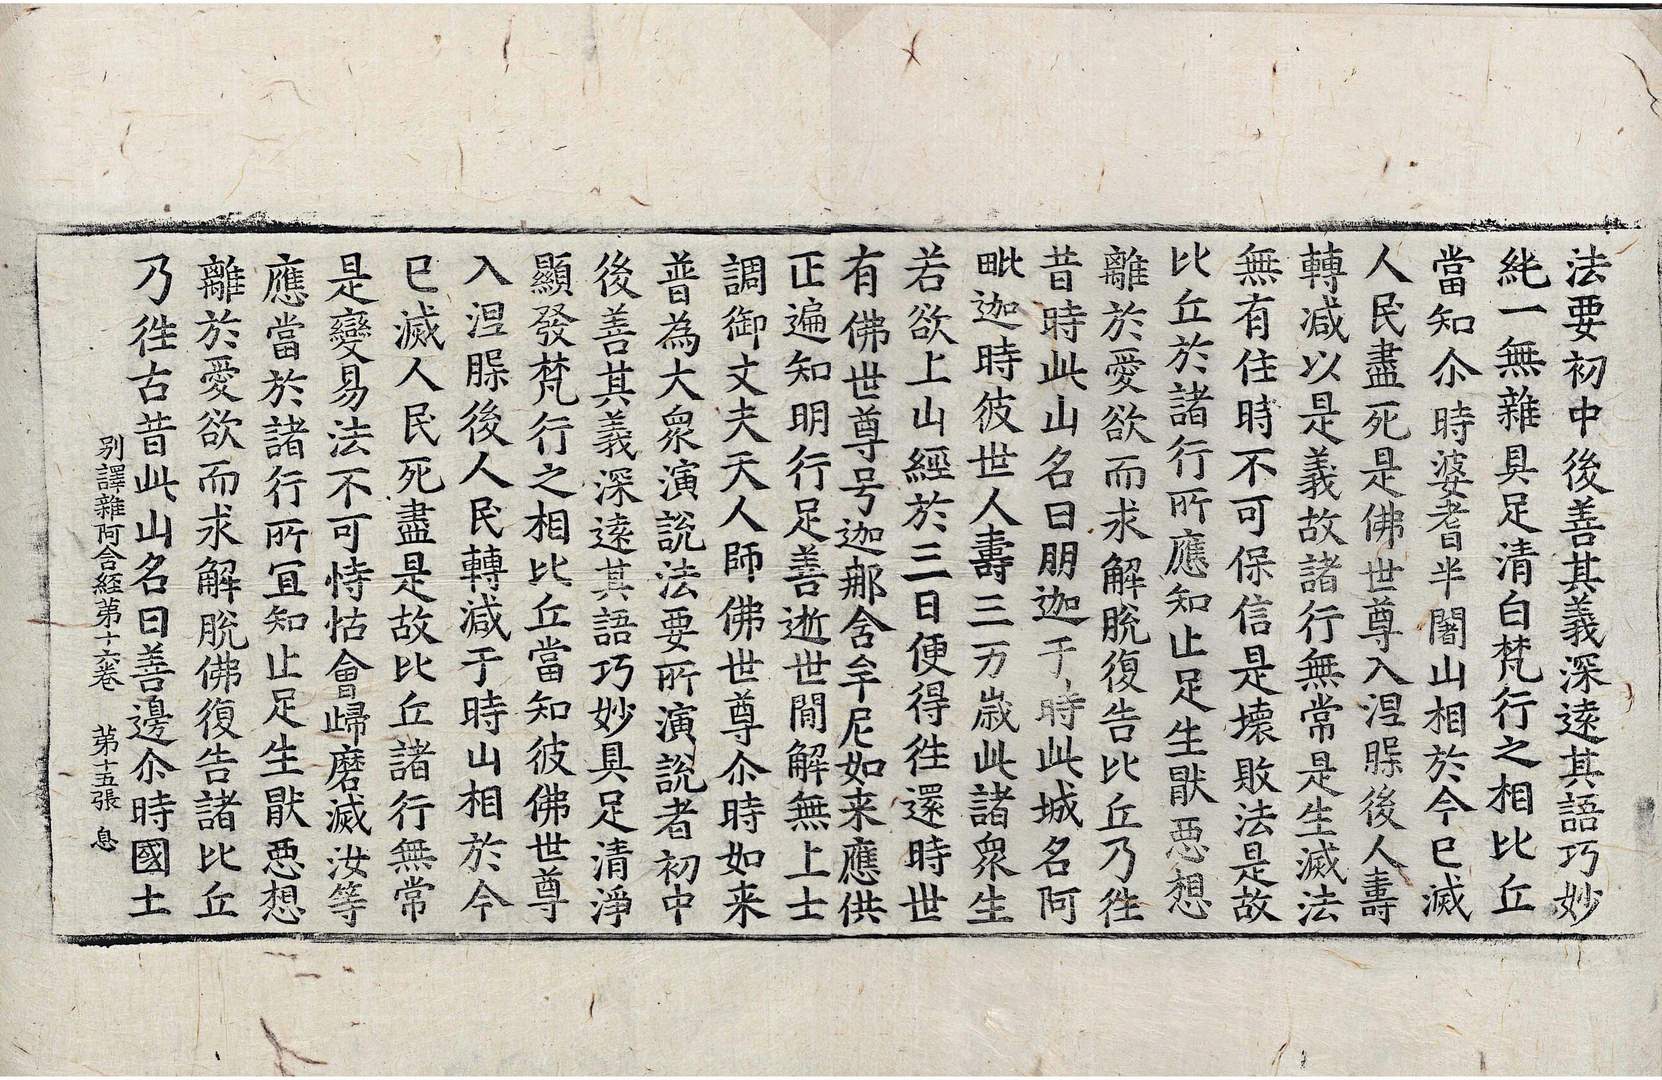 法要初中後善其義深遠其語巧妙
純一無雜具足清白梵行之相比丘
當知尒時婆耆半闍山相於今已滅
人民盡死是佛世尊入涅槃後人壽
轉減以是義故諸行無常是生滅法
無有住時不可保信是壞敗法是故
比丘於諸行所應知止足生猒惡想
離於愛欲而求解脫復告比丘乃徃
昔時此山名曰朋迦于時此城名阿
毗迦時彼世人壽三万歲此諸衆生
若欲上山經於三日便得徃還時世
有佛世尊号迦那含牟尼如来應供
正遍知明行足善逝世間解無上士
調御丈夫天人師佛世尊尒時如来
普為大衆演說法要所演說者初中
後善其義深遠其語巧妙具足清淨
顯發梵行之相比丘當知彼佛世尊
入涅槃後人民轉減于時山相於今
已滅人民死盡是故比丘諸行無常
是變易法不可恃怙會歸磨滅汝等
應當於諸行所宜知止足生猒惡想
離於愛欲而求解脫佛復告諸比丘
乃徃古昔此山名曰善邊尒時國土
别譯雜阿含経苐十六卷 苐十五張 息